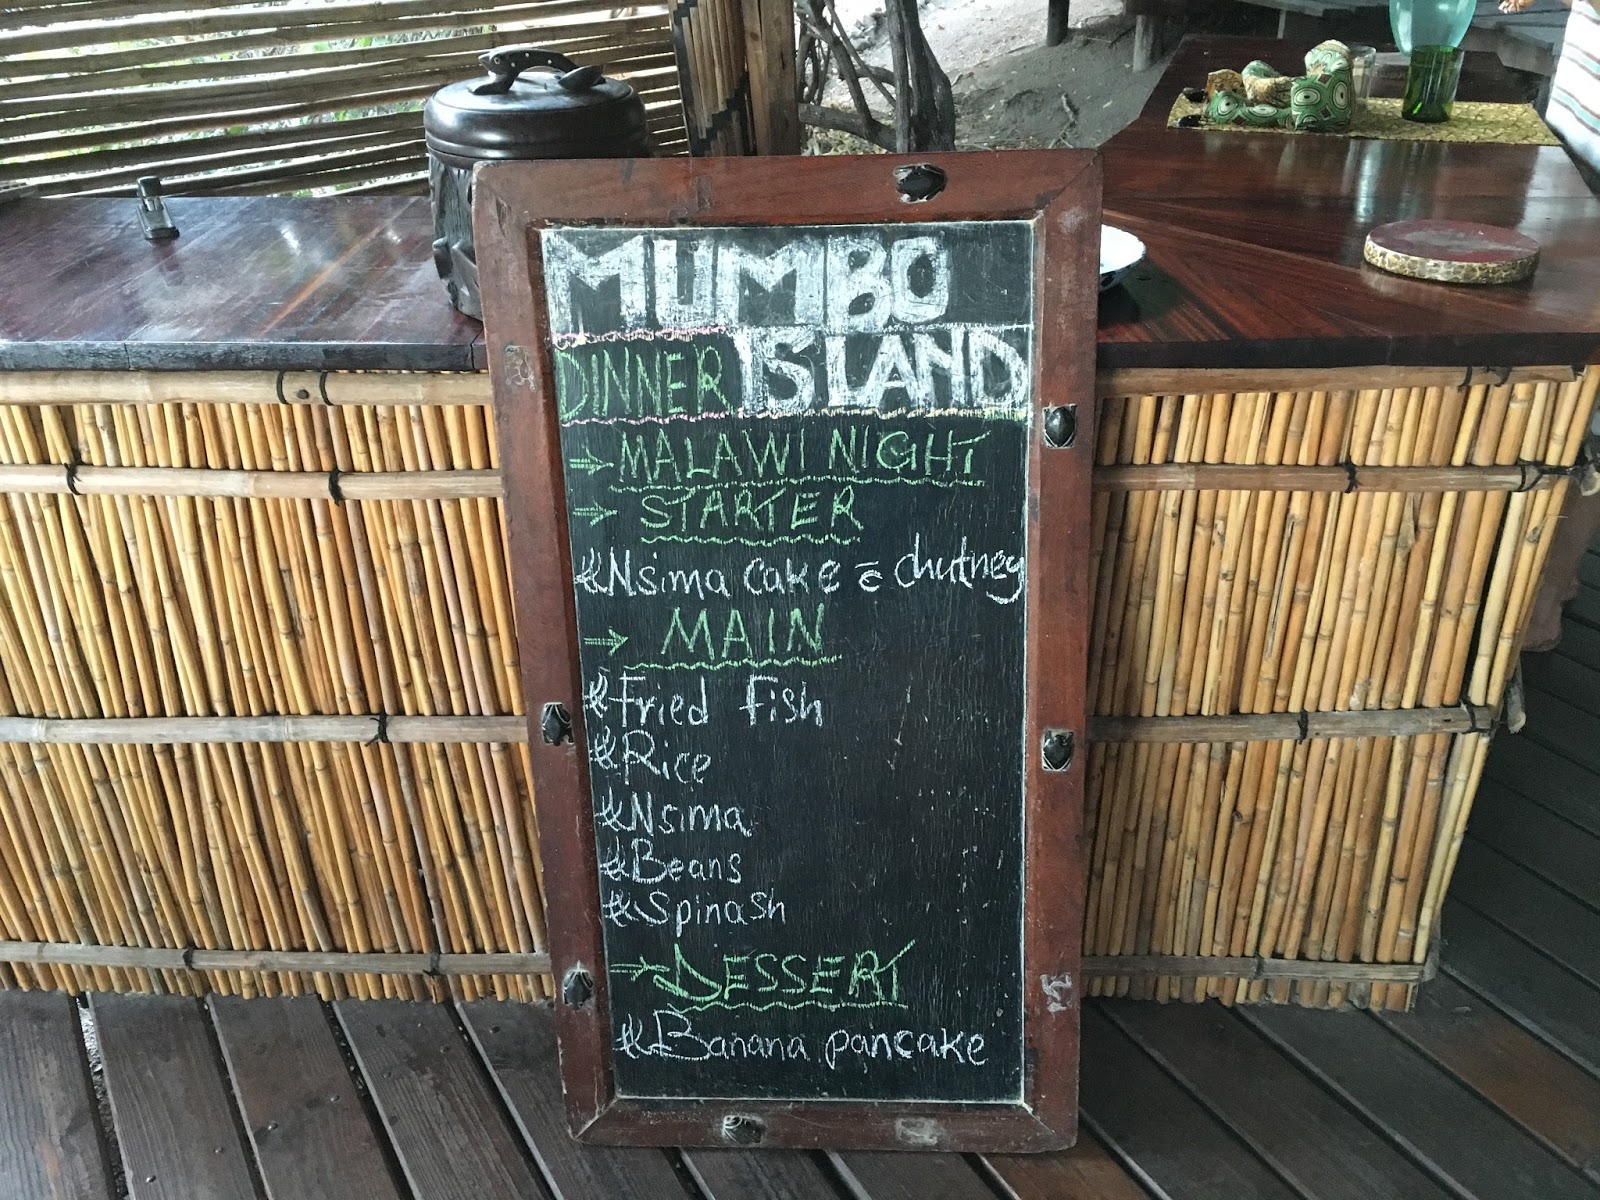 MUMBO
DINNER ISLAND
→ MALAWI NIGHT
→ STARTER
Nsima cake c̄ chutney
→ MAIN
Fried Fish
Rice
Nsima
Beans
Spinash
→ DESSERT
Banana pancake